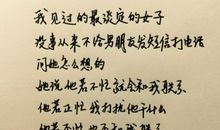 我见过的最淡定的女子
没事从来不给男朋友发短信打电话
问她怎么想的
她说他若不忙就会和我联系
他若正忙我打扰他干什么
他若不忙也不和我联系